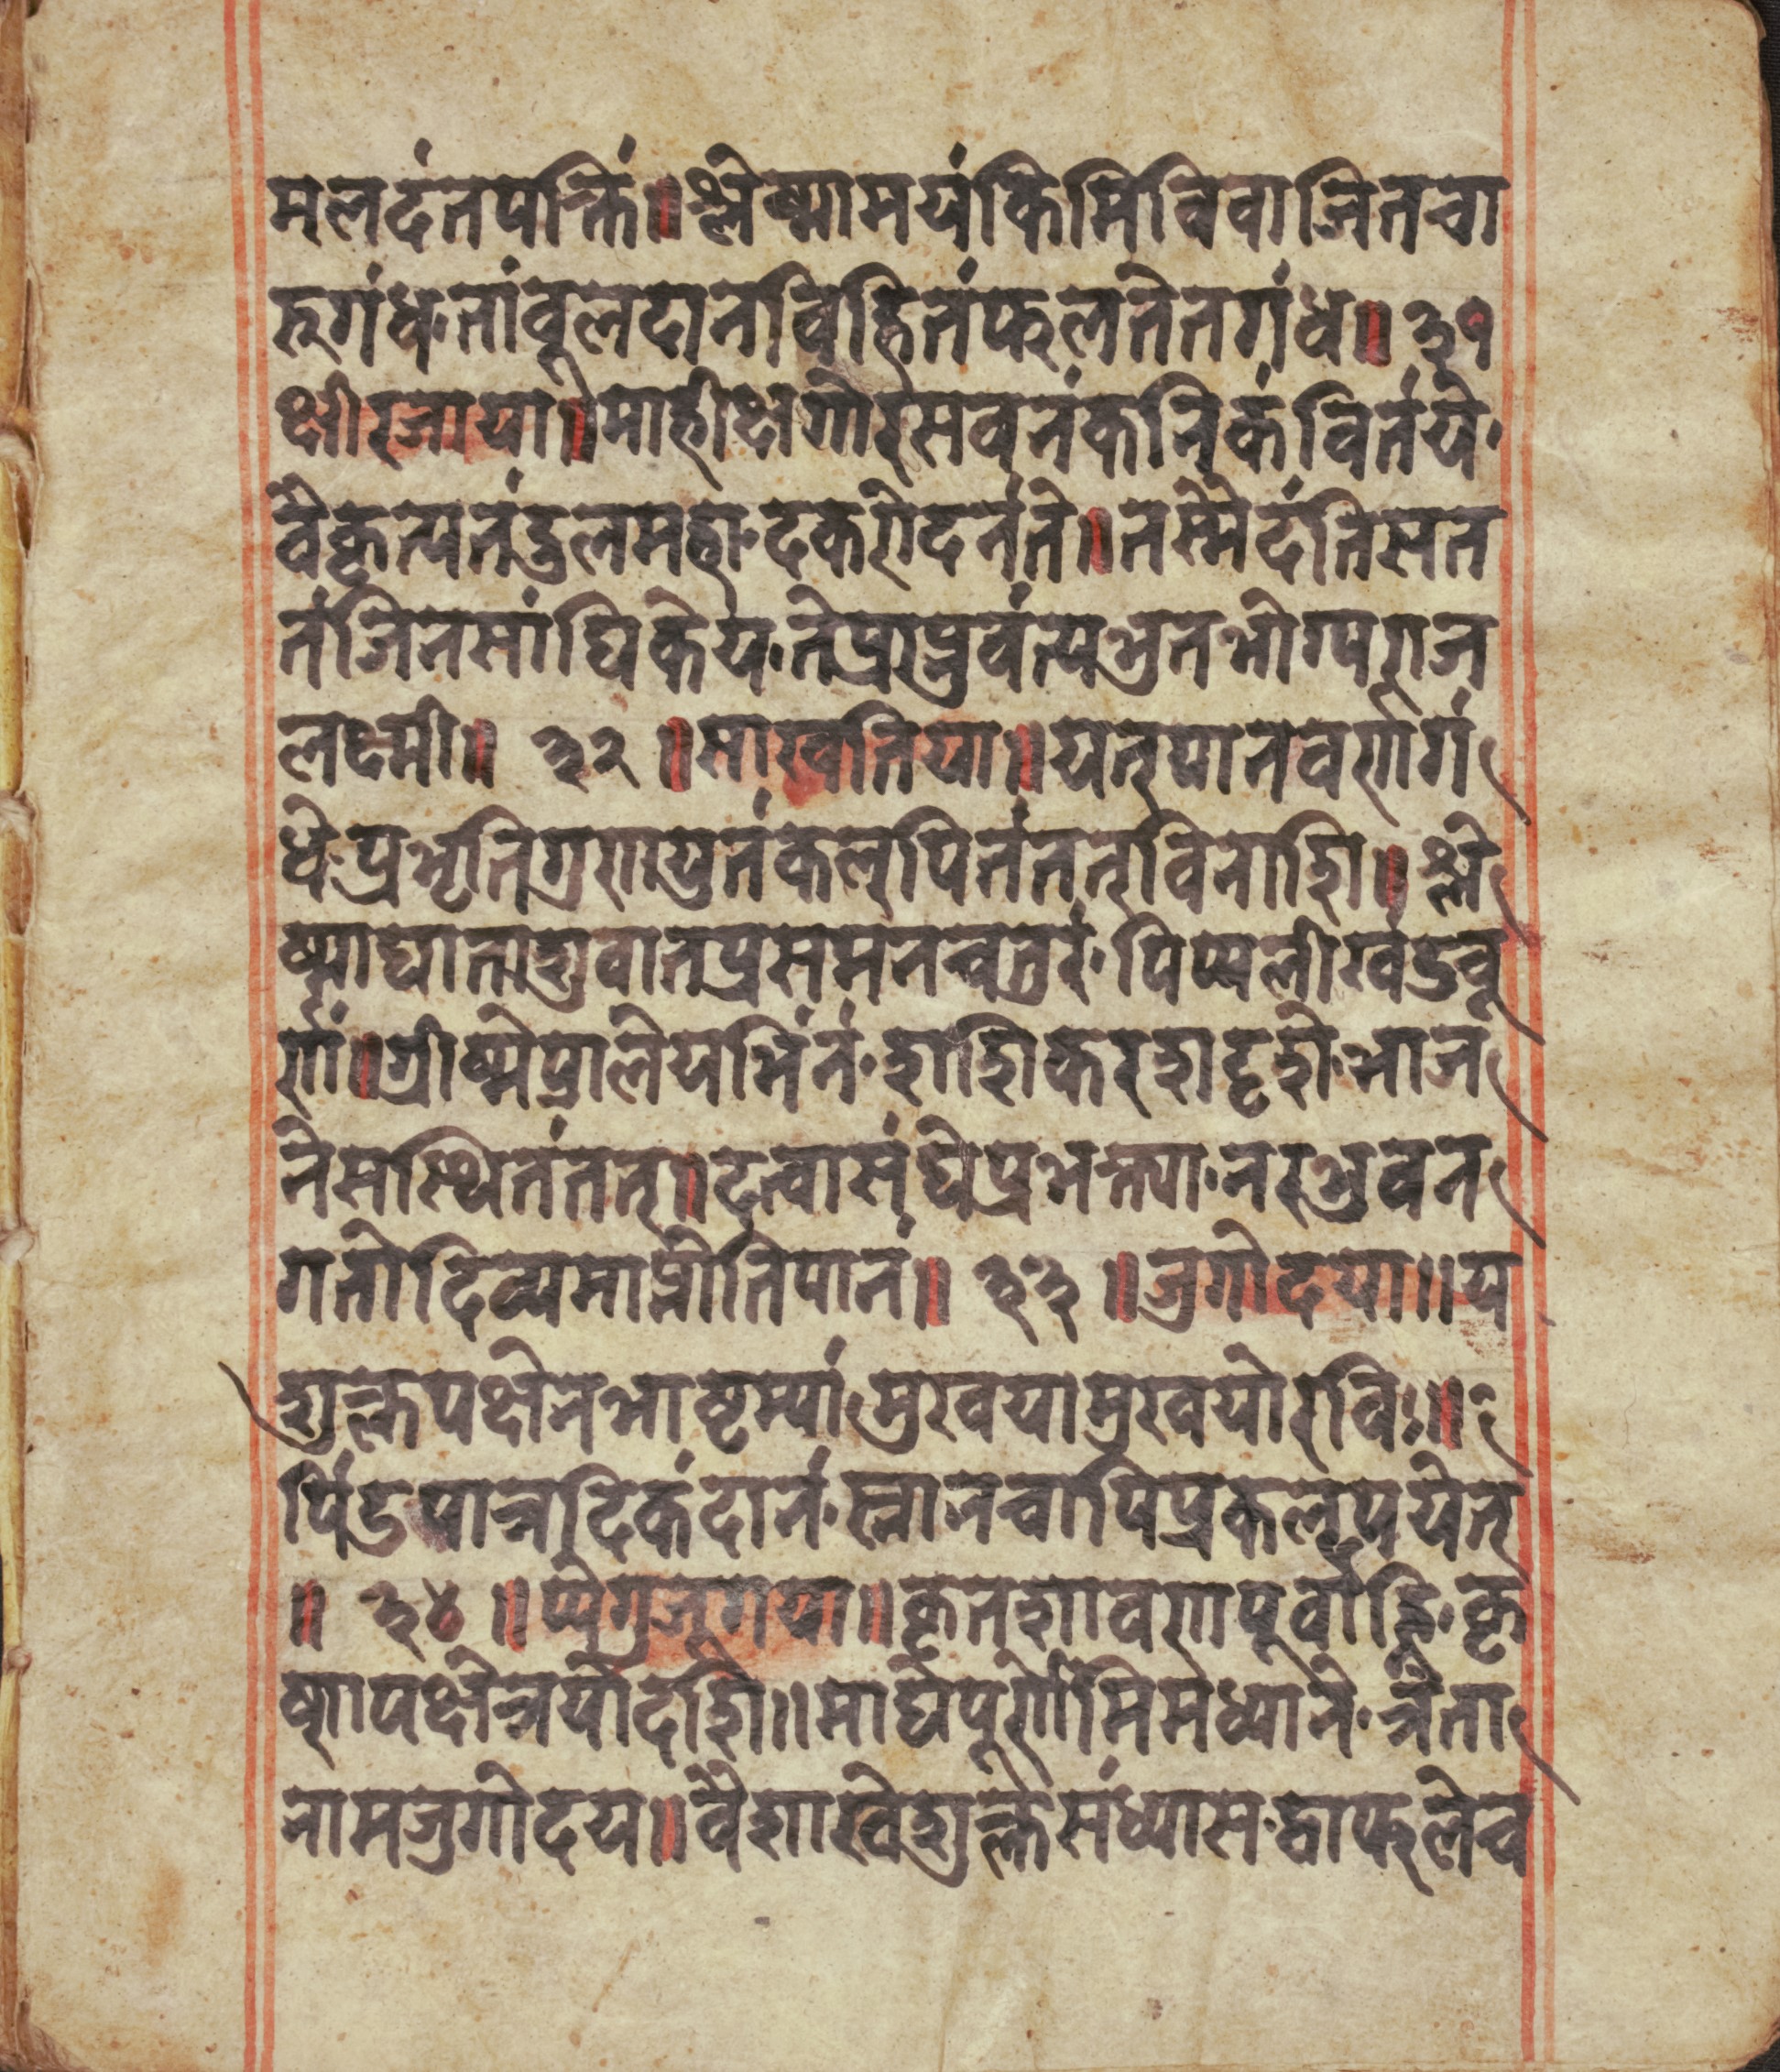 मलदंतपक्तिं॥श्लेष्मामयंकिमिविवाजितचा
रुगंध॰तांबूलदानविहितंफलतेतगंध॥३१
क्षीरजाया॥माहीक्षगोरसवनंकनिकंविर्तये॰
वैकृत्यतंडुलमद्वा॰दकरोदनंते॥तस्मेदंतिसत
तंजिनसांघिकेय॰तेप्राप्नुवंत्यभुतभोग्पराज
लक्ष्मी॥ ३२ ॥साखतिया॥यत्पानवर्णगं
धे॰प्रभृतिगुणयुतंकल्पितंतत्विनाशि॥श्ले
ष्माद्यातत्रशुवातप्रसमनचतुरं॰पिप्पलीखंडचू
र्णं॥ग्रीष्मेप्रालेयभिंनं॰शशिकरशदृशे॰भाजं
नेसस्थितंतत्॥दत्वासंघेप्रभक्त्या॰नरभुवन
गतोदिव्यमाप्नोतिपानं॥ ३३ ॥जुगोदया॥य
शुक्लपक्षेनभाष्टम्यां॰मुखयामुखयोरविः॥
पिंडपात्रादिकंदानं॰स्नानचापिप्रकल्पयेत्
॥ ३४ ॥प्येगुजूगया॥कृतशावणपूर्वाह्णि॰कृ
ष्णपक्षेत्रयोदशि॥मार्घेपूर्णमिमध्याने॰त्रेता
नामजुगोदय॥वैशाखेशुक्लेसंध्यास॰द्वाफलेच